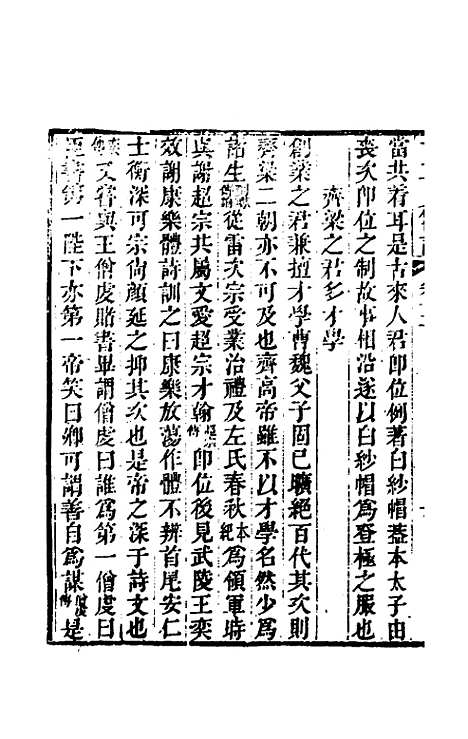 當共着耳是古來人君卽位例著白紗帽蓋本太子由
喪次卽位之制故事相沿遂以白紗帽爲登極之服也
齊梁之君多才學
創業之君兼擅才學曹魏父子固已曠絕百代其次則
齊梁二朝亦不可及也齊高帝雖不以才學名然少爲
諸生從雷次宗受業治禮及左氏春秋本紀爲領軍時
與謝超宗共屬文愛超宗才翰超宗傳卽位後見武陵王奕
效謝康樂體詩訓之曰康樂放蕩作體不辨首尾安仁
士衡深可宗尚顏延之抑其次也是帝之深于詩文也
又嘗與王僧虔賭書畢謂僧虔曰誰爲第一僧虔曰
臣書第一陛下亦第一帝笑曰卿可謂善自爲謀僧虔傳是